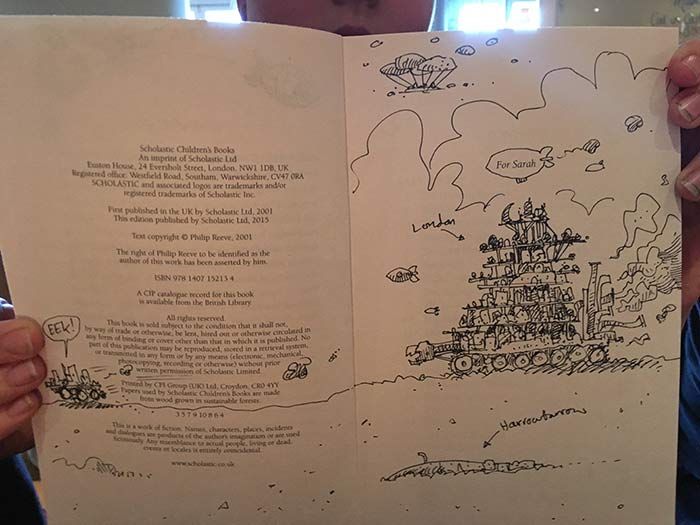 Scholastic Children's Books
An imprint of Scholastic Ltd
Euston House, 24 Eversholt Street, London, NW1 1DB, UK
Registered office: Westfield Road, Southam, Warwickshire, CV47 0RA
SCHOLASTIC and associated logos are trademarks and/or
registered trademarks of Scholastic Inc.
First published in the UK by Scholastic Ltd, 2001
This edition published by Scholastic Ltd, 2015
Text copyright © Philip Reeve, 2001
The right of Philip Reeve to be identified as the
author of this work has been asserted by him.
ISBN 978 1407 15213 4
A CIP catalogue record for this book
is available from the British Library
All rights reserved.
This book is sold subject to the condition that it shall not,
by way of trade or otherwise, be lent, hired out or otherwise circulated in
any form of binding or cover other than that in which it is published. No
part of this publication may be reproduced, stored in a retrieval system,
or transmitted in any form or by any means (electronic, mechanical,
photocopying, recording or otherwise) without prior
written permission of Scholastic Limited.
EEK!
Printed by CPI Group (UK) Ltd, Croydon, CR0 4YY
Papers used by Scholastic Children's Books are made
from wood grown in sustainable forests.
3 5 7 9 10 8 6 4
This is a work of fiction. Names, characters, places, incidents
and dialogues are products of the author's imagination or are used
fictitiously. Any resemblance to actual people, living or dead,
events or locales is entirely coincidental.
www.scholastic.co.uk
For Sarah
London
Harrowbarrow